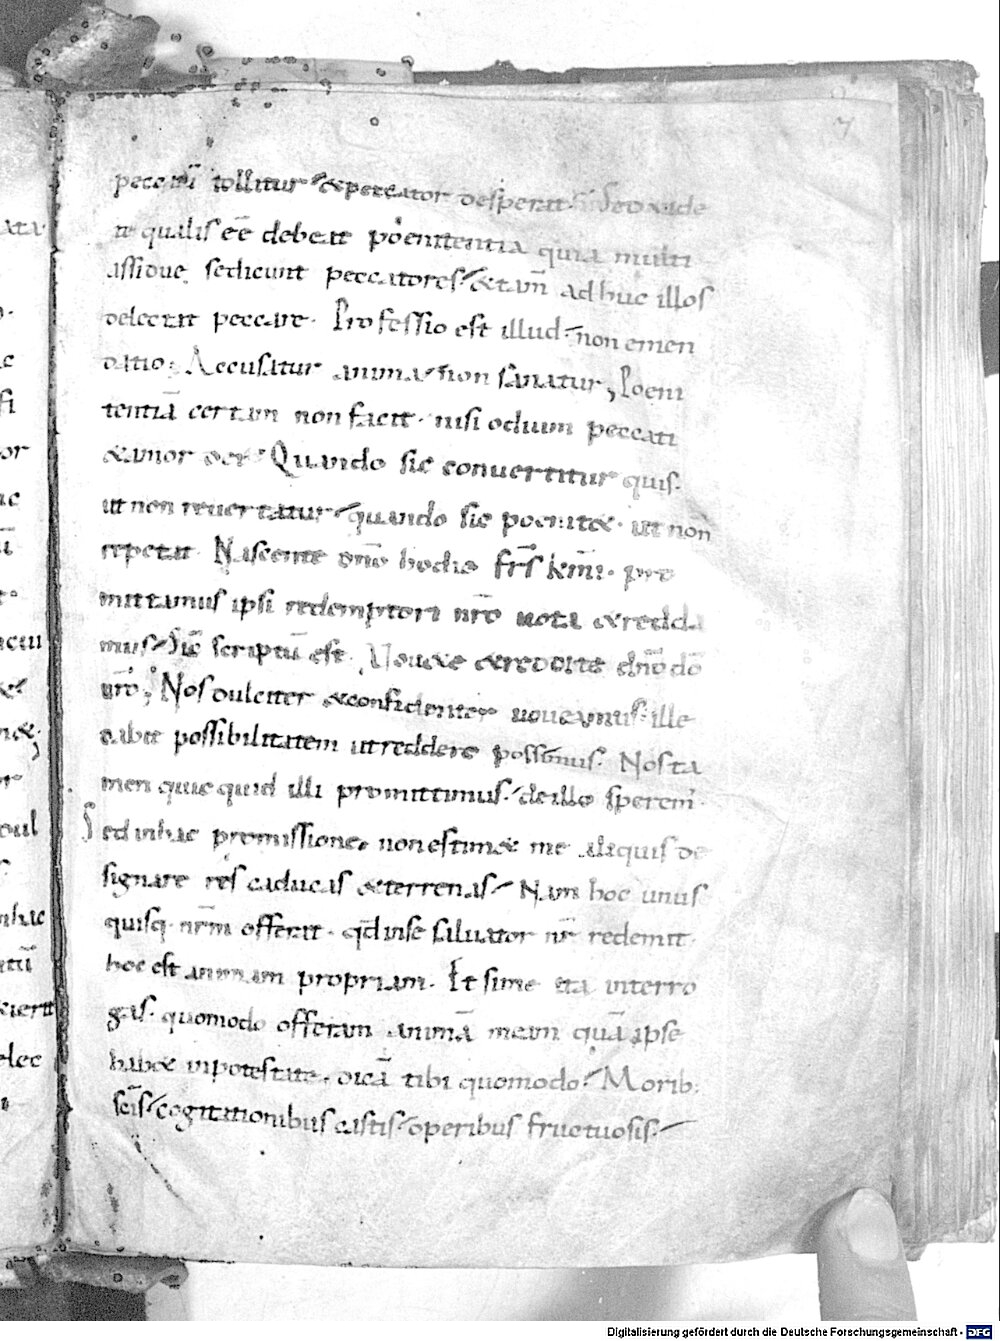 7
peccatū tollitur & peccator desperat. Sed vide
te qualis eē debeat poenitentia quia multi
assidue se dicunt peccatores & tam̄ adhuc illos
delectat peccare. Professio est illud non emen
datio; Accusatur anima non sanatur, Poeni
tentiā certam non facit nisi odium peccati
& amor dei. Quando sic convertitur quis.
ut non revertatur quando sic poenitet. ut non
repetat. Nascente dn̄o hodie fr̄s km̄i. pro
mittamus ipsi redemptori nr̄o vota & redda
mus sic scriptū est. Vovete & reddite dn̄o dō
vr̄o; Nos dulciter & confidenter voveamus. ille
dabit possibilitatem ut reddere possimus. Nos ta
men quic quid illi promittimus. de illo sperem̄.
Sed in hac promissione non estimet me aliquis de
signare res caducas & terrenas Nam hoc unus
quisq. nr̄m offerat. qd̄ in se salvator nr̄ redemit.
hoc est animam propriam. Et si me ita interro
gas. quomodo offeram animā meam quā ipse
habet in potestate. dicā tibi quomodo. Morib:
scīs cogitationibus castis operibus fructuosis.
Digitalisierung gefördert durch die Deutsche Forschungsgemeinschaft - DFG